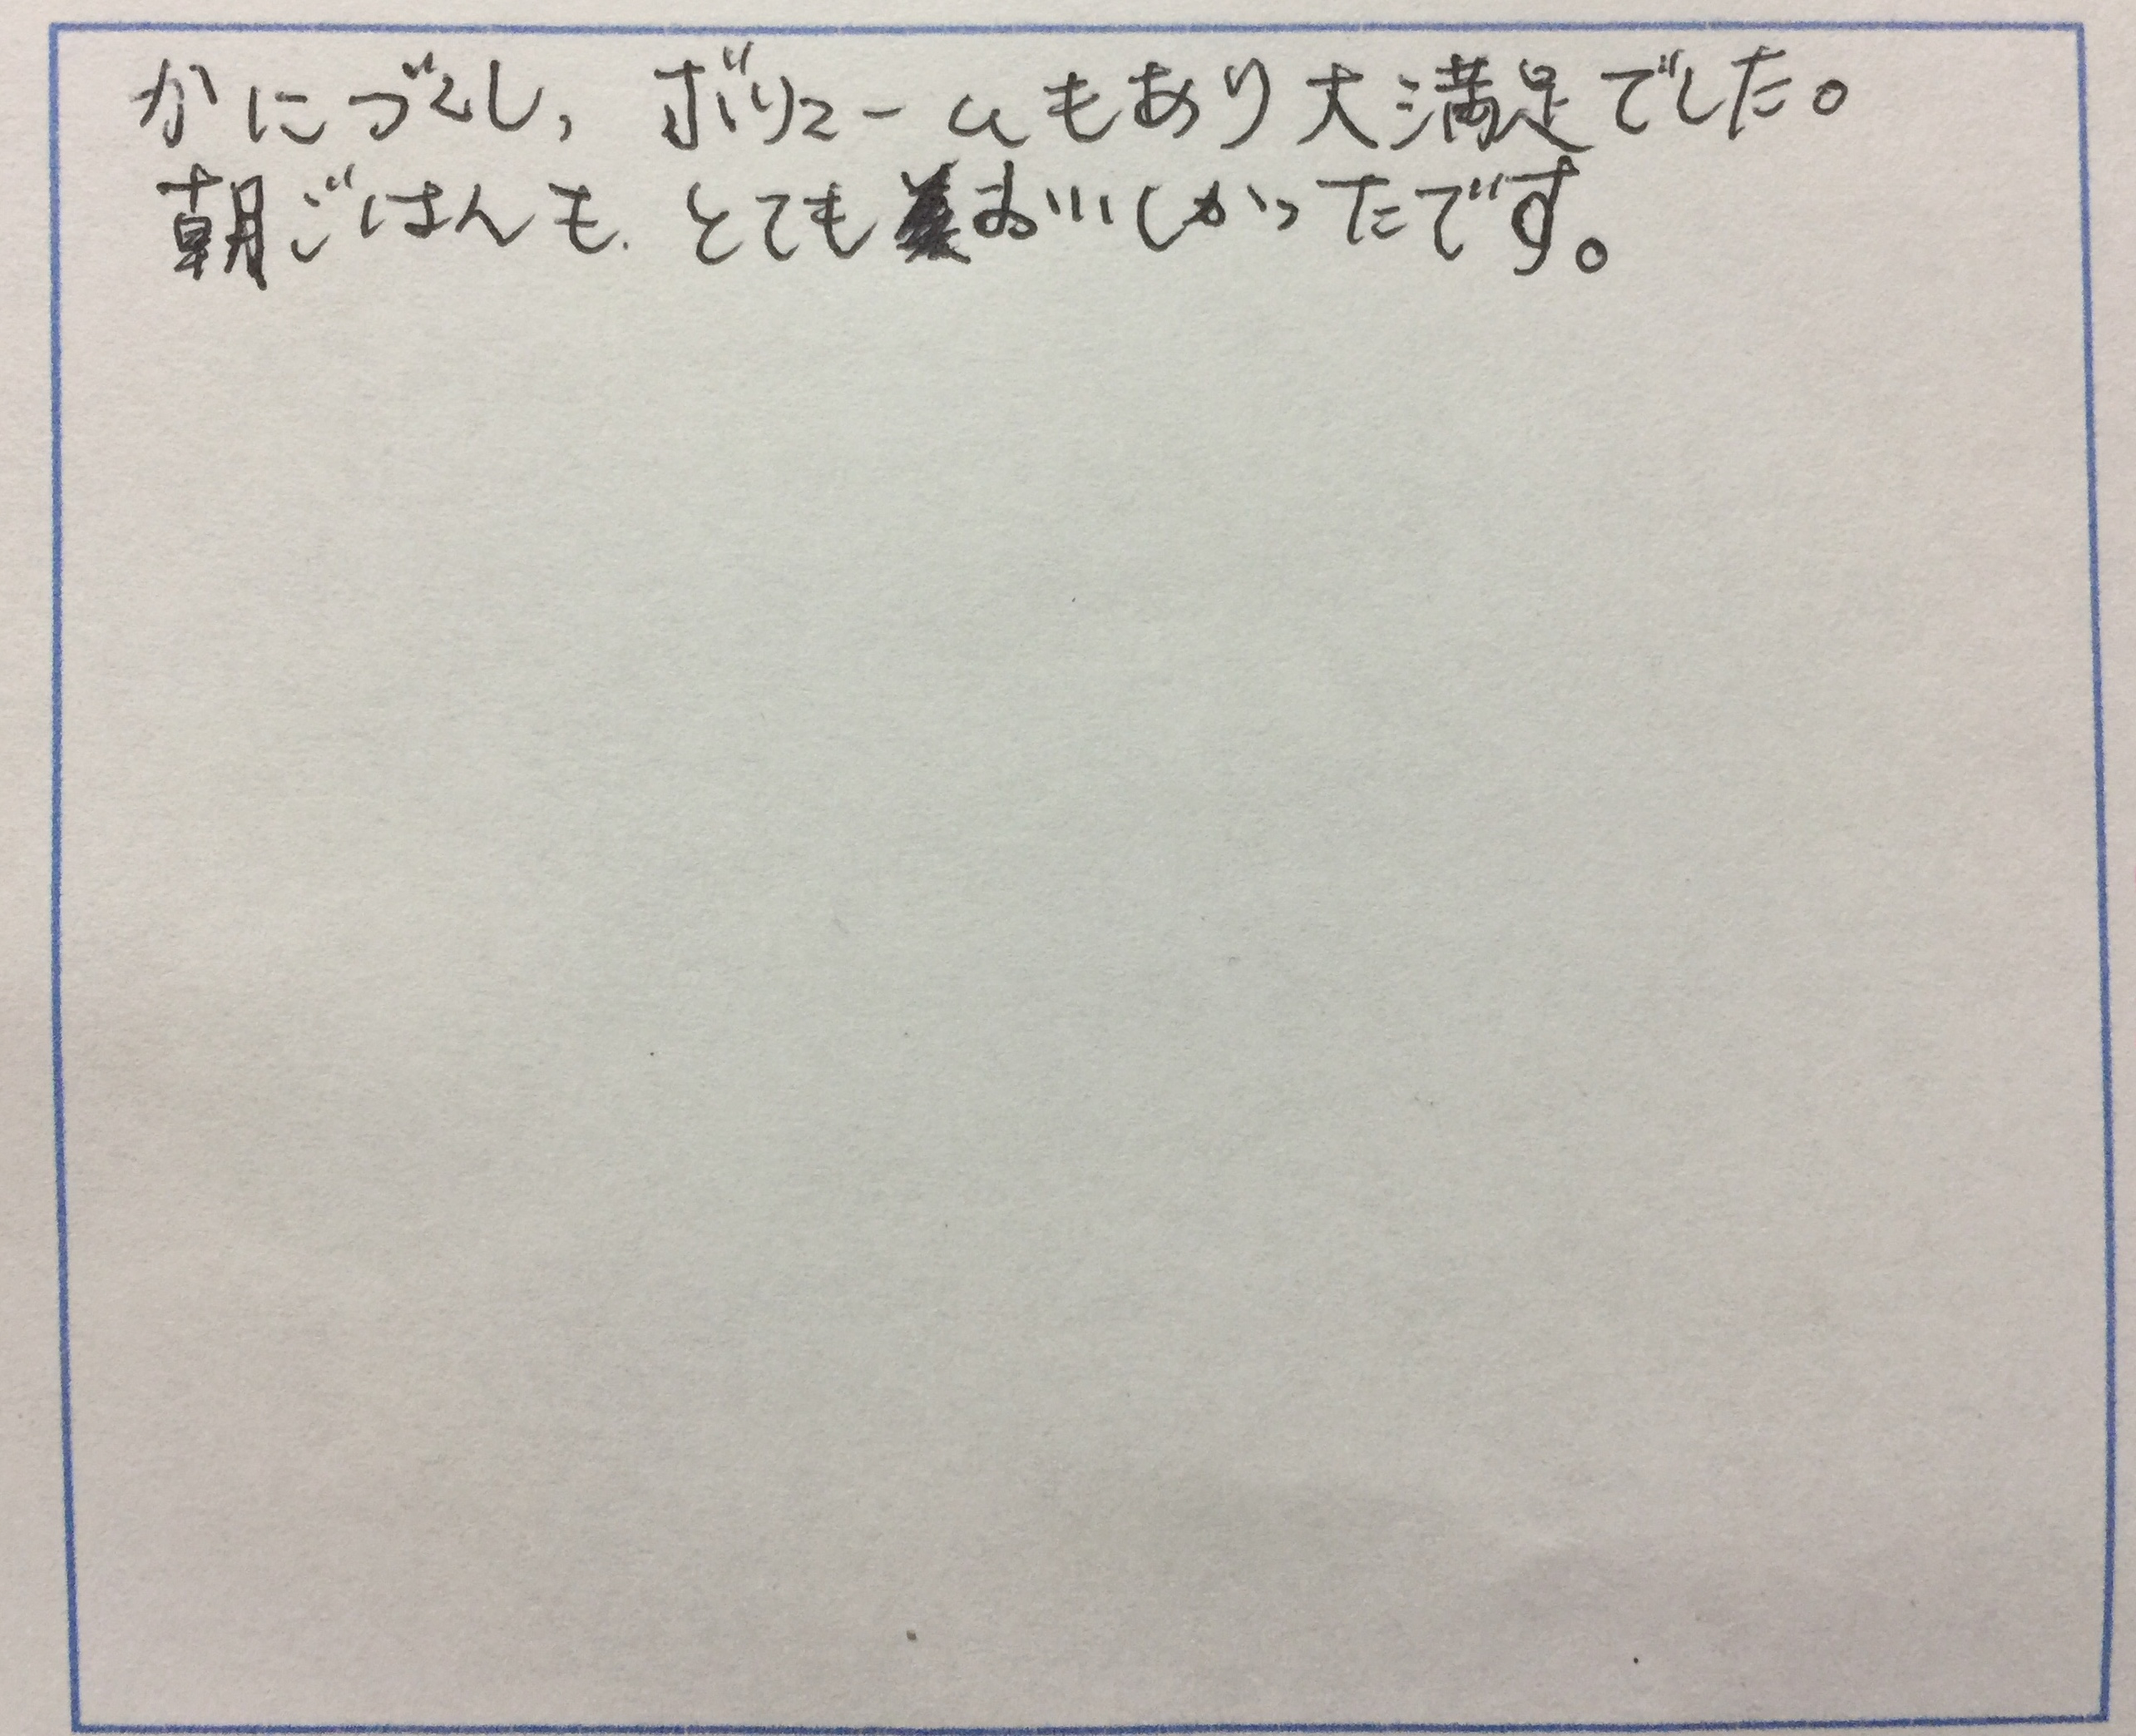 かにづくし、ボリュームもあり大満足でした。
朝ごはんも、とてもおいしかったです。